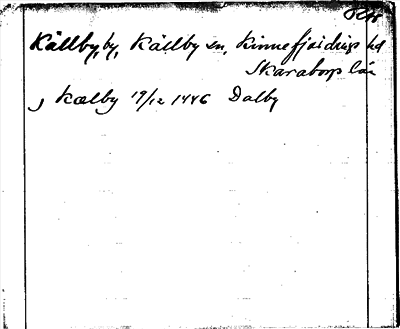 Källby, by, Källby sn, Kinnefjärdings hd
Skaraborgs län
, Kælby 19/12 1446 Dalby